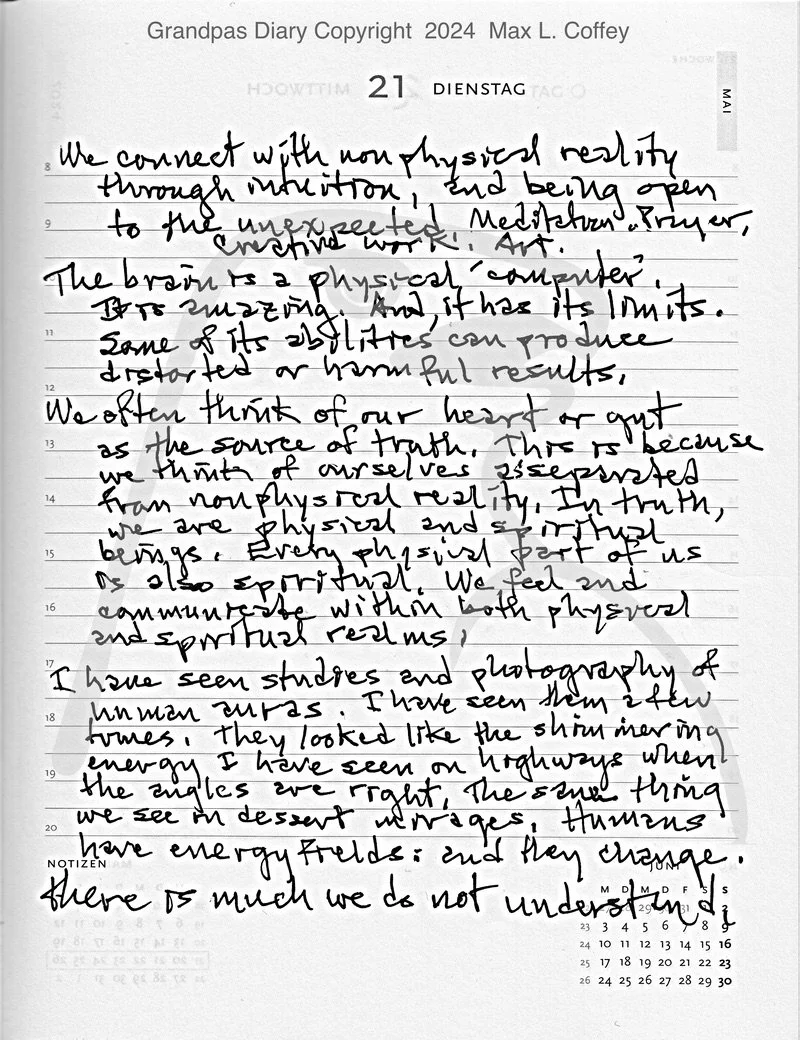 Grandpas Diary Copyright 2024 Max L. Coffey
21 DIENSTAG
MAI
We connect with nonphysical reality
through intuition, and being open
to the unexpected. Meditation. Prayer,
Creative work. Art.
The brain is a physical 'computer'.
It is amazing. And, it has its limits.
Some of its abilities can produce
distorted or harmful results.
We often think of our heart or gut
as the source of truth. This is because
we think of ourselves as separated
from nonphysical reality. In truth,
we are physical and spiritual
beings. Every physical part of us
is also spiritual. We feel and
communicate within both physical
and spiritual realms.
I have seen studies and photography of
human auras. I have seen them a few
times. They looked like the shimmering
energy I have seen on highways when
the angles are right. The same thing
we see in dessert mirages. Humans
have energy fields: and they change.
There is much we do not understand.
8
9
11
12
13
14
15
16
17
18
19
20
NOTIZEN
JUNI
M D M D F S S
29 31 2
23 3 4 5 6 7 8 9
24 10 11 12 13 14 15 16
25 17 18 19 20 21 22 23
26 24 25 26 27 28 29 30